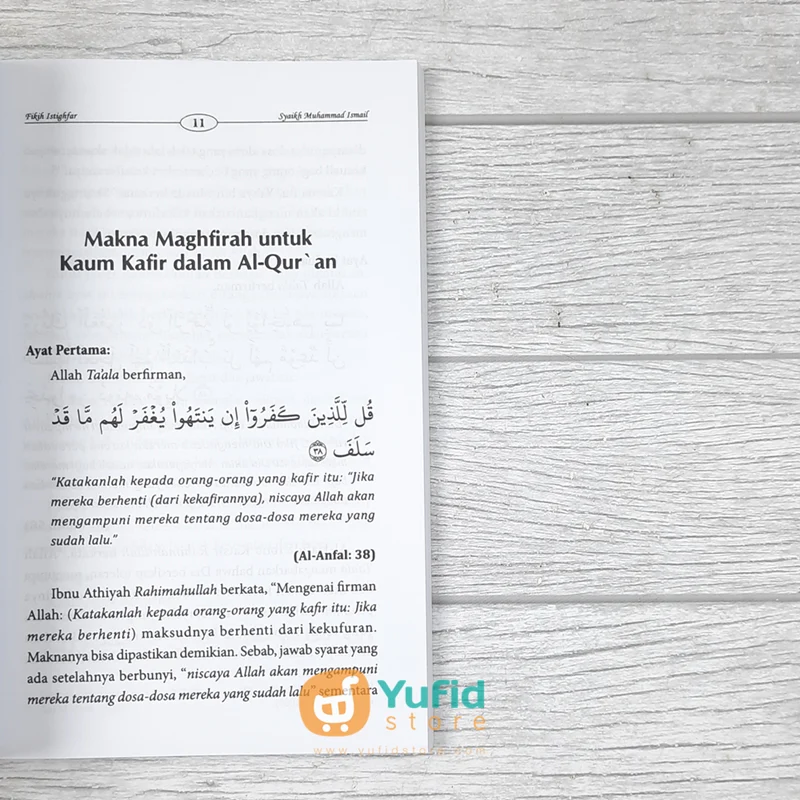 Fikih Istighfar
11
Syaikh Muhammad Ismail
Makna Maghfirah untuk
Kaum Kafir dalam Al-Qur`an
Ayat Pertama:
Allah Ta'ala berfirman,
قُل لِّلَّذِينَ كَفَرُوٓاْ إِن يَنتَهُواْ يُغْفَرْ لَهُم مَّا قَدْ
سَلَفَ ٣٨
"Katakanlah kepada orang-orang yang kafir itu: "Jika
mereka berhenti (dari kekafirannya), niscaya Allah akan
mengampuni mereka tentang dosa-dosa mereka yang
sudah lalu."
(Al-Anfal: 38)
Ibnu Athiyah Rahimahullah berkata, "Mengenai firman
Allah: (Katakanlah kepada orang-orang yang kafir itu: Jika
mereka berhenti) maksudnya berhenti dari kekufuran.
Maknanya bisa dipastikan demikian. Sebab, jawab syarat yang
ada setelahnya berbunyi, "niscaya Allah akan mengampuni
mereka tentang dosa-dosa mereka yang sudah lalu" sementara
Yufid
store
www.yufidstore.com